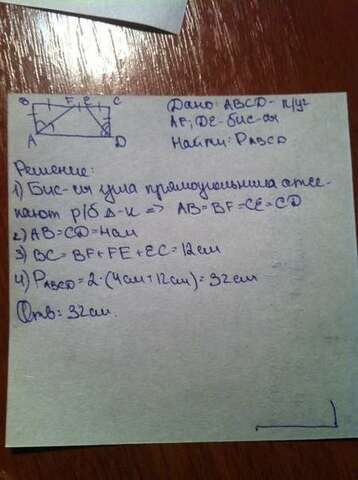 B F E C
Дано: ABCD - п/уг
AF; DE - бис-ы
A D
Найти: PABCD
Решение:
1) Бис-са угла прямоугольника отсе-
кают р/б Δ-к => AB=BF=CE=CD
2) AB=CD=4см
3) BC=BF+FE+EC=12см
4) PABCD=2·(4см+12см)=32см
Отв: 32см.